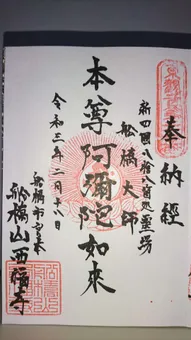 奉納經
新四國八拾八箇処霊場
船橋大師
本尊阿彌陀如來
令和三年二月十八日
船橋市宮本
船橋山西福寺